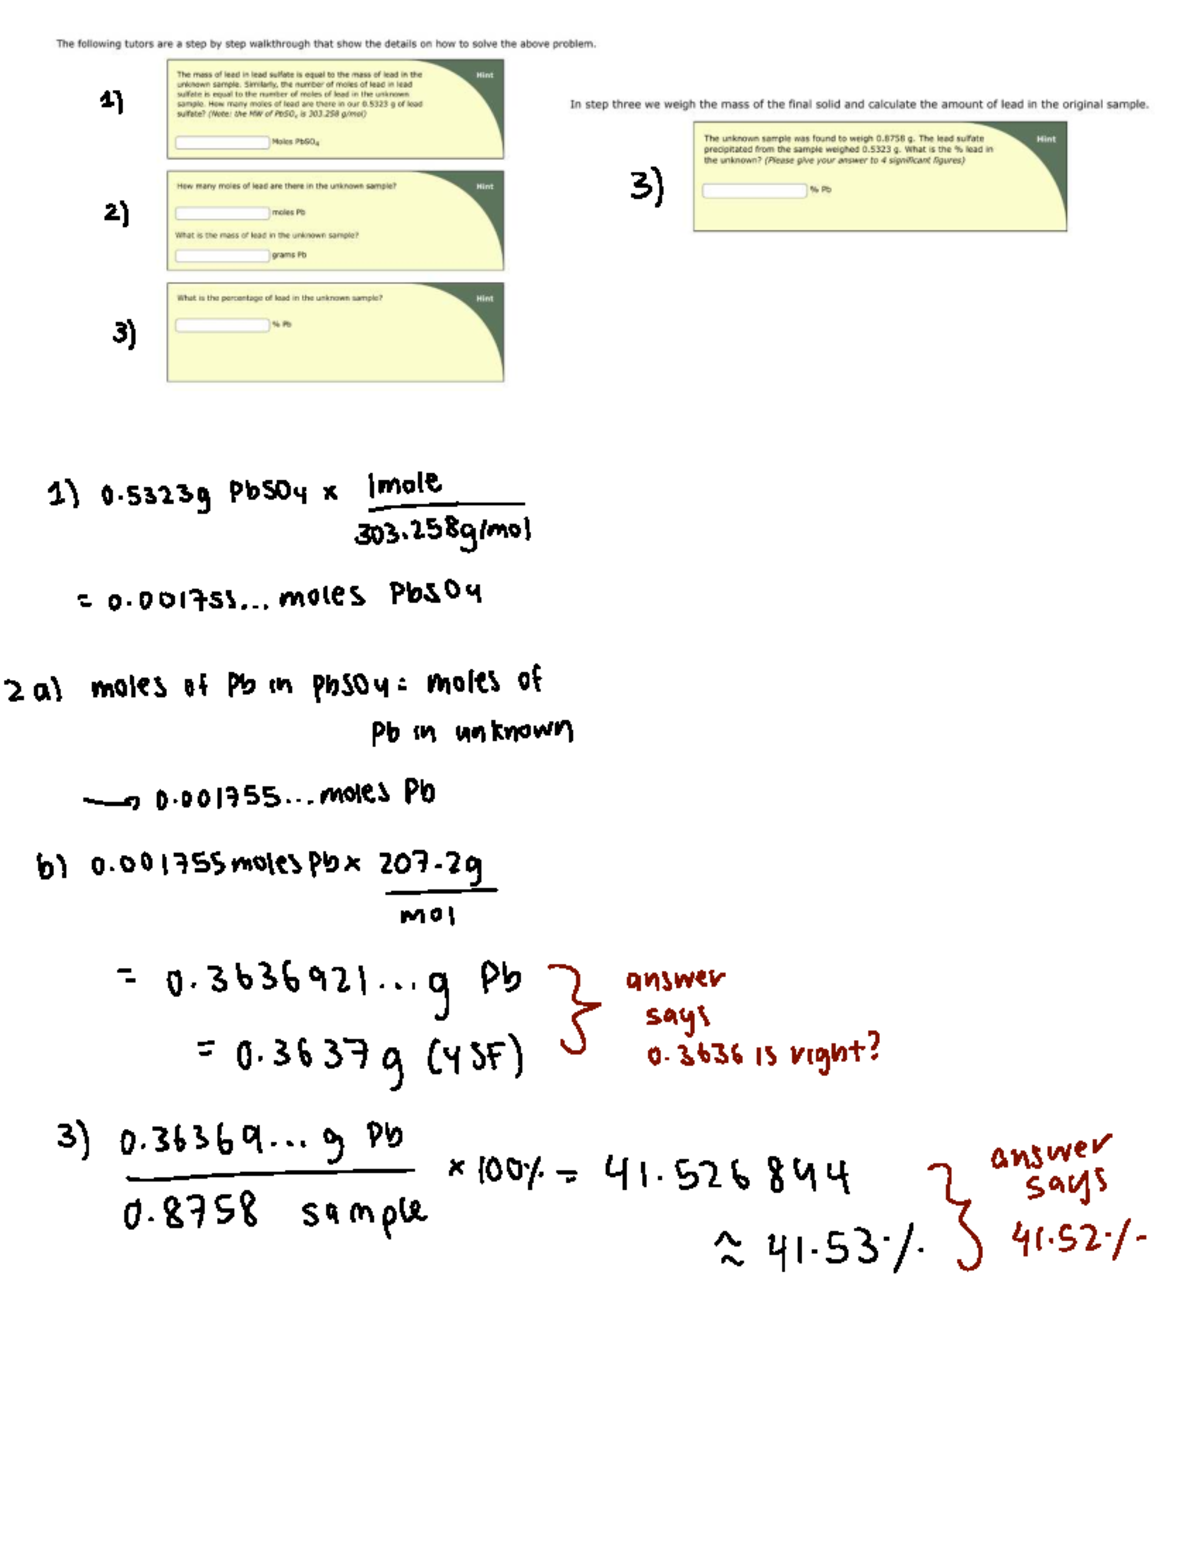 The following tutors are a step by step walkthrough that show the details on how to solve the above problem.
1)
The mass of lead in lead sulfate is equal to the mass of lead in the
unknown sample. Similarly, the number of moles of lead in lead
sulfate is equal to the number of moles of lead in the unknown
sample. How many moles of lead are there in our 0.5323 g of lead
sulfate? (Note: the MW of PbSO₄ is 303.258 g/mol)
Hint
Moles PbSO₄
2)
How many moles of lead are there in the unknown sample?
Hint
moles Pb
What is the mass of lead in the unknown sample?
grams Pb
3)
What is the percentage of lead in the unknown sample?
Hint
% Pb
In step three we weigh the mass of the final solid and calculate the amount of lead in the original sample.
3)
The unknown sample was found to weigh 0.8758 g. The lead sulfate
precipitated from the sample weighed 0.5323 g. What is the % lead in
the unknown? (Please give your answer to 4 significant figures)
Hint
% Pb
1) 0.5323g PbSO4 x 1mole
303.258g/mol
= 0.001755... moles PbSO4
2 a) moles of Pb in PbSO4 = moles of
Pb in unknown
→ 0.001755... moles Pb
b) 0.001755 moles Pb x 207.2g
mol
= 0.3636921... g Pb
= 0.3637g (4SF)
answer
says
0.3636 is right?
3) 0.36369... g Pb
0.8758 sample
x 100% = 41.526844
≈ 41.53%
answer
says
41.52%